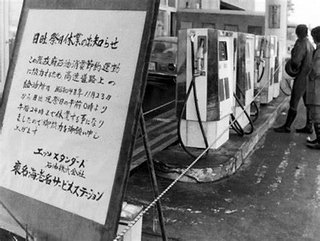 日曜祭日休業のお知らせ
この度政府石油消費節約運動
に協力のため、高速道路上の
給油所は昭和48年11月23日
から日曜祭日の午前0時より
午后24時まで休業する事になり
ましたので御協力を御願い申し
上げます
エッソスタンダード
石油株式会社
東名海老名サービスステーション